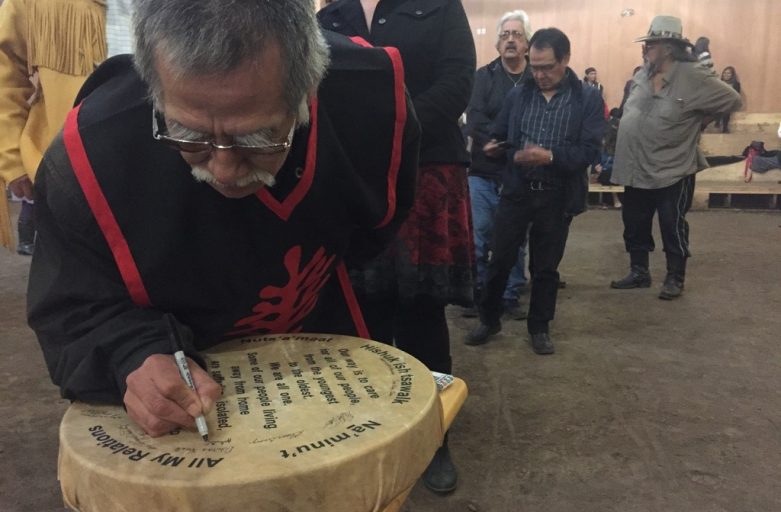 Nuts'a'maat
Hishuk ish tsawalk
Na̱'minu't
All My Relations
Our way is to care
for all of our people
from the youngest
to the oldest.
We are all one.
Some of our people living
away from home
are suffering, isolated,